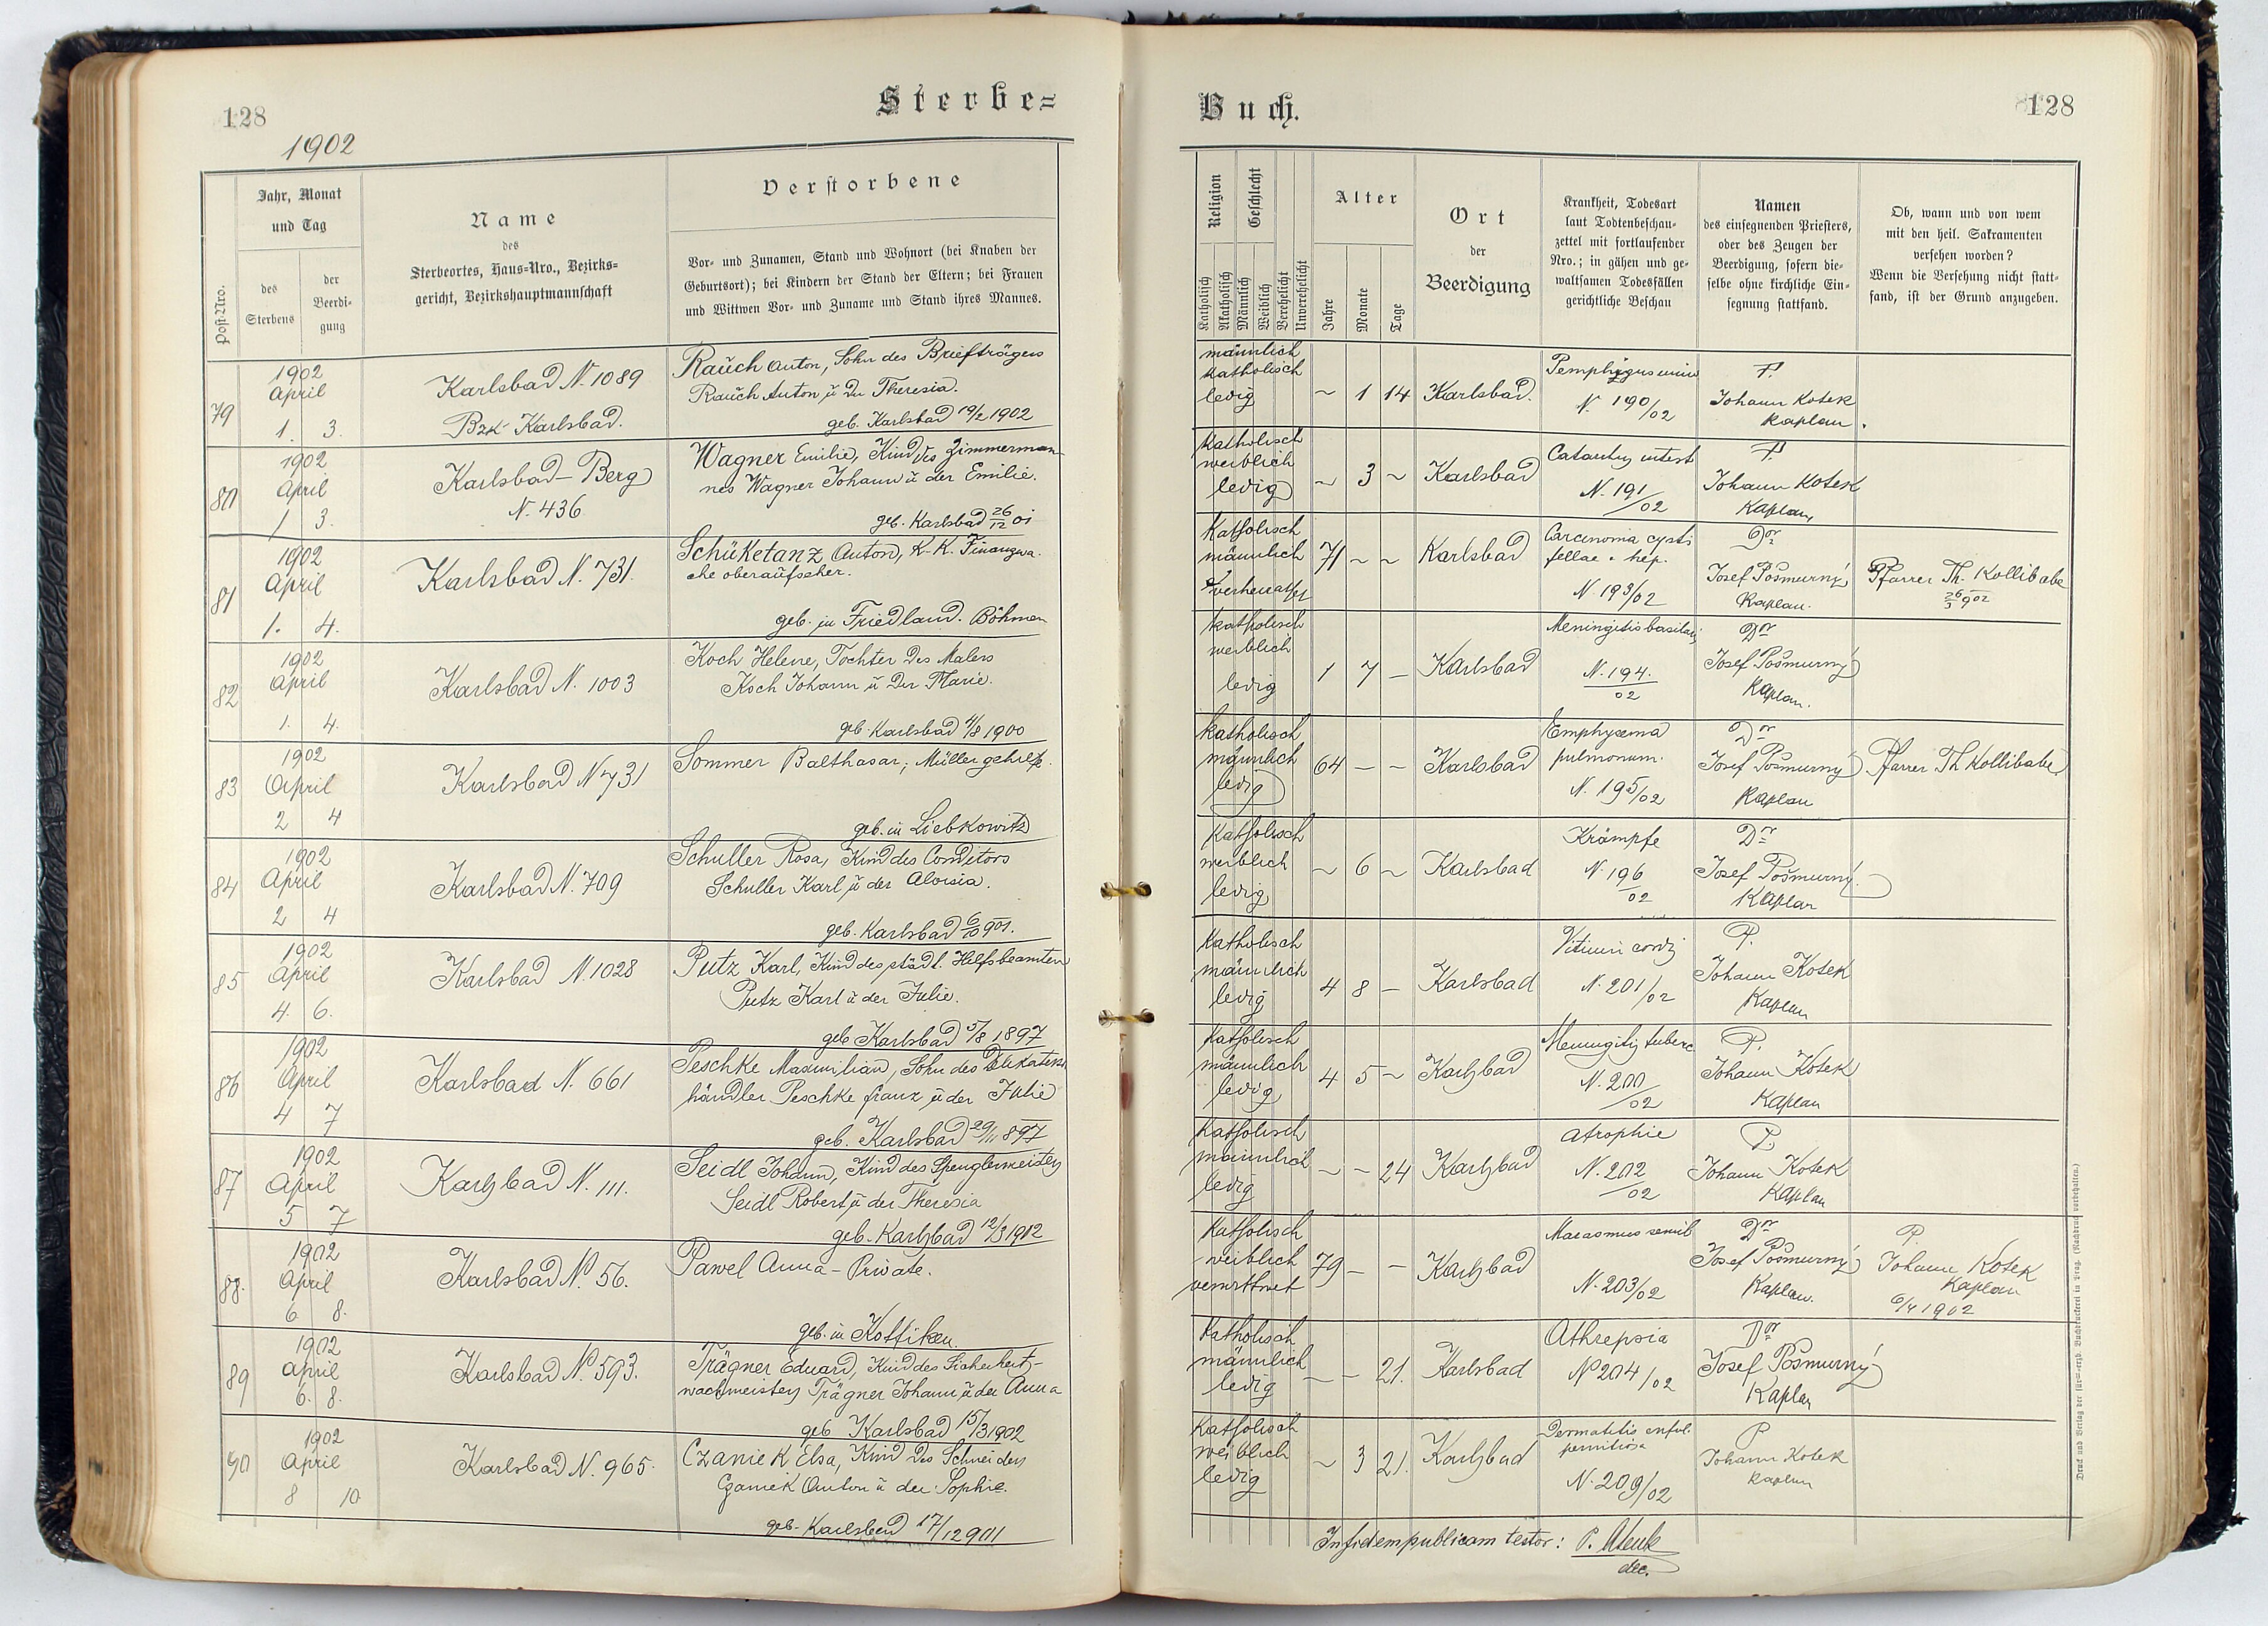 128
Sterbe=
1902
Post-Nro.
Jahr, Monat
und Tag
des
Sterbens
der
Beerdi-
gung
Name
des
Sterbeortes, Haus-Nro., Bezirks=
gericht, Bezirkshauptmannschaft
Verstorbene
Vor- und Zunamen, Stand und Wohnort (bei Knaben der
Geburtsort); bei Kindern der Stand der Eltern; bei Frauen
und Wittwen Vor- und Zuname und Stand ihres Mannes.
79
1902
April
1. 3.
Karlsbad N. 1089
Bzk Karlsbad.
Rauch Anton, Sohn des Briefträgers
Rauch Anton u der Theresia.
geb. Karlsbad 19/2 1902
80
1902
April
1 3.
Karlsbad - Berg
N. 436
Wagner Emilie, Kind des Zimmerman-
nes Wagner Johann u der Emilie.
geb. Karlsbad 26/12 01
81
1902
April
1. 4.
Karlsbad N. 731.
Schüketanz Anton, K. K. Finanzwa-
che oberaufseher.
geb. in Friedland. Böhmen
82
1902
April
1. 4.
Karlsbad N. 1003
Koch Helene, Tochter des Malers
Koch Johann u der Marie.
geb. Karlsbad 1900
83
1902
April
2 4
Karlsbad N 731
Sommer Balthasar, Müllergehilfe.
geb. in Liebkowitz
84
1902
April
2 4
Karlsbad N. 709
Schuller Rosa, Kind des Conditors
Schuller Karl u der Aloisia.
geb. Karlsbad 6/10 901.
85
1902
April
4. 6.
Karlsbad N. 1028
Putz Karl, Kind des städt. Hilfsbeamten
Putz Karl u der Julie.
geb Karlsbad 5/8 1897
86
1902
April
4 7
Karlsbad N. 661
Peschke Maximilian, Sohn des Delikatess
händler Peschke Franz u der Julie
geb. Karlsbad 29/11 897
87
1902
April
5 7
Karlsbad N. 111.
Seidl Johann, Kind des Spenglermeisters
Seidl Robert u der Theresia
geb. Karlsbad 12/3 1902
88.
1902
April
6 8.
Karlsbad N. 56.
Pawel Anna - Private.
geb. in
89
1902
April
6. 8.
Karlsbad N. 593.
Trägner Eduard, Kind des Sicherheits-
wachmeisters Trägner Johann u der Anna
geb Karlsbad 15/3 1902
90
1902
April
8 10
Karlsbad N. 965.
Czaniek Elsa, Kind des Schneiders
Czaniek Anton u der Sophie.
geb. Karlsbad 17/12 901
Buch.
128
Religion
Geschlecht
Katholisch
Akatholisch
Männlich
Weiblich
Verehelicht
Unverehelicht
Alter
Jahre
Monate
Tage
Ort
der
Beerdigung
Krankheit, Todesart
laut Todtenbeschau-
zettel mit fortlaufender
Nro.; in gähen und ge-
waltsamen Todesfällen
gerichtliche Beschau
Namen
des einsegnenden Priesters,
oder des Zeugen der
Beerdigung, sofern die-
selbe ohne kirchliche Ein-
segnung stattfand.
Ob, wann und von wem
mit den heil. Sakramenten
versehen worden?
Wenn die Versehung nicht statt-
fand, ist der Grund anzugeben.
männlich
katholisch
ledig
~ 1 14
Karlsbad.
Pemphigus
N. 190/02
P.
Johann Kotek
Kaplan.
katholisch
weiblich
ledig
~ 3 ~
Karlsbad
intest
N. 191/02
P.
Johann Kotek
Kaplan
Katholisch
männlich
verheirathet
71 ~ ~
Karlsbad
Carcinoma cysti
fellae. hep.
N 193/02
Dr
Josef Pošmurný
Kaplan.
Pfarrer Th. Kollibabe
26/3 902
katholisch
weiblich
ledig
1 7 -
Karlsbad
Meningitis basilaris
N. 194./02
Dr
Josef Pošmurný
Kaplan.
katholisch
männlich
ledig
64 - -
Karlsbad
Emphysema
pulmonum.
N. 195/02
Dr
Josef Pošmurný
Kaplan
Pfarrer Th Kollibabe
Katholisch
weiblich
ledig
~ 6 ~
Karlsbad
Krämpfe
N. 196/02
Dr
Josef Pošmurný.
Kaplan
Katholisch
männlich
ledig
4 8 -
Karlsbad
Vitium cordis
N. 201/02
P.
Johann Kotek
Kaplan
Katholisch
männlich
ledig
4 5 ~
Karlsbad
Meningitis tuberc
N. 200/02
P.
Johann Kotek
Kaplan
Katholisch
männlich
ledig
~ - 24
Karlsbad
Atrophie
N. 202/02
P.
Johann Kotek
Kaplan
Katholisch
weiblich
verwittwet
79 - -
Karlsbad
Marasmus senil
N. 203/02
Dr
Josef Pošmurný
Kaplan.
P.
Johann Kotek
Kaplan
6/4 1902
Katholisch
männlich
ledig
~ - 21.
Karlsbad
Athrepsia
N 204/02
Dr
Josef Pošmurný
Kaplan
Katholisch
weiblich
ledig
~ 3 21.
Karlsbad
Dermatitis
N. 209/02
P
Johann Kotek
Kaplan
In fidem publicam testor:
dec.
Druck und Verlag der fürst-erzb. Buchdruckerei in Prag. (Nachdruck vorbehalten.)